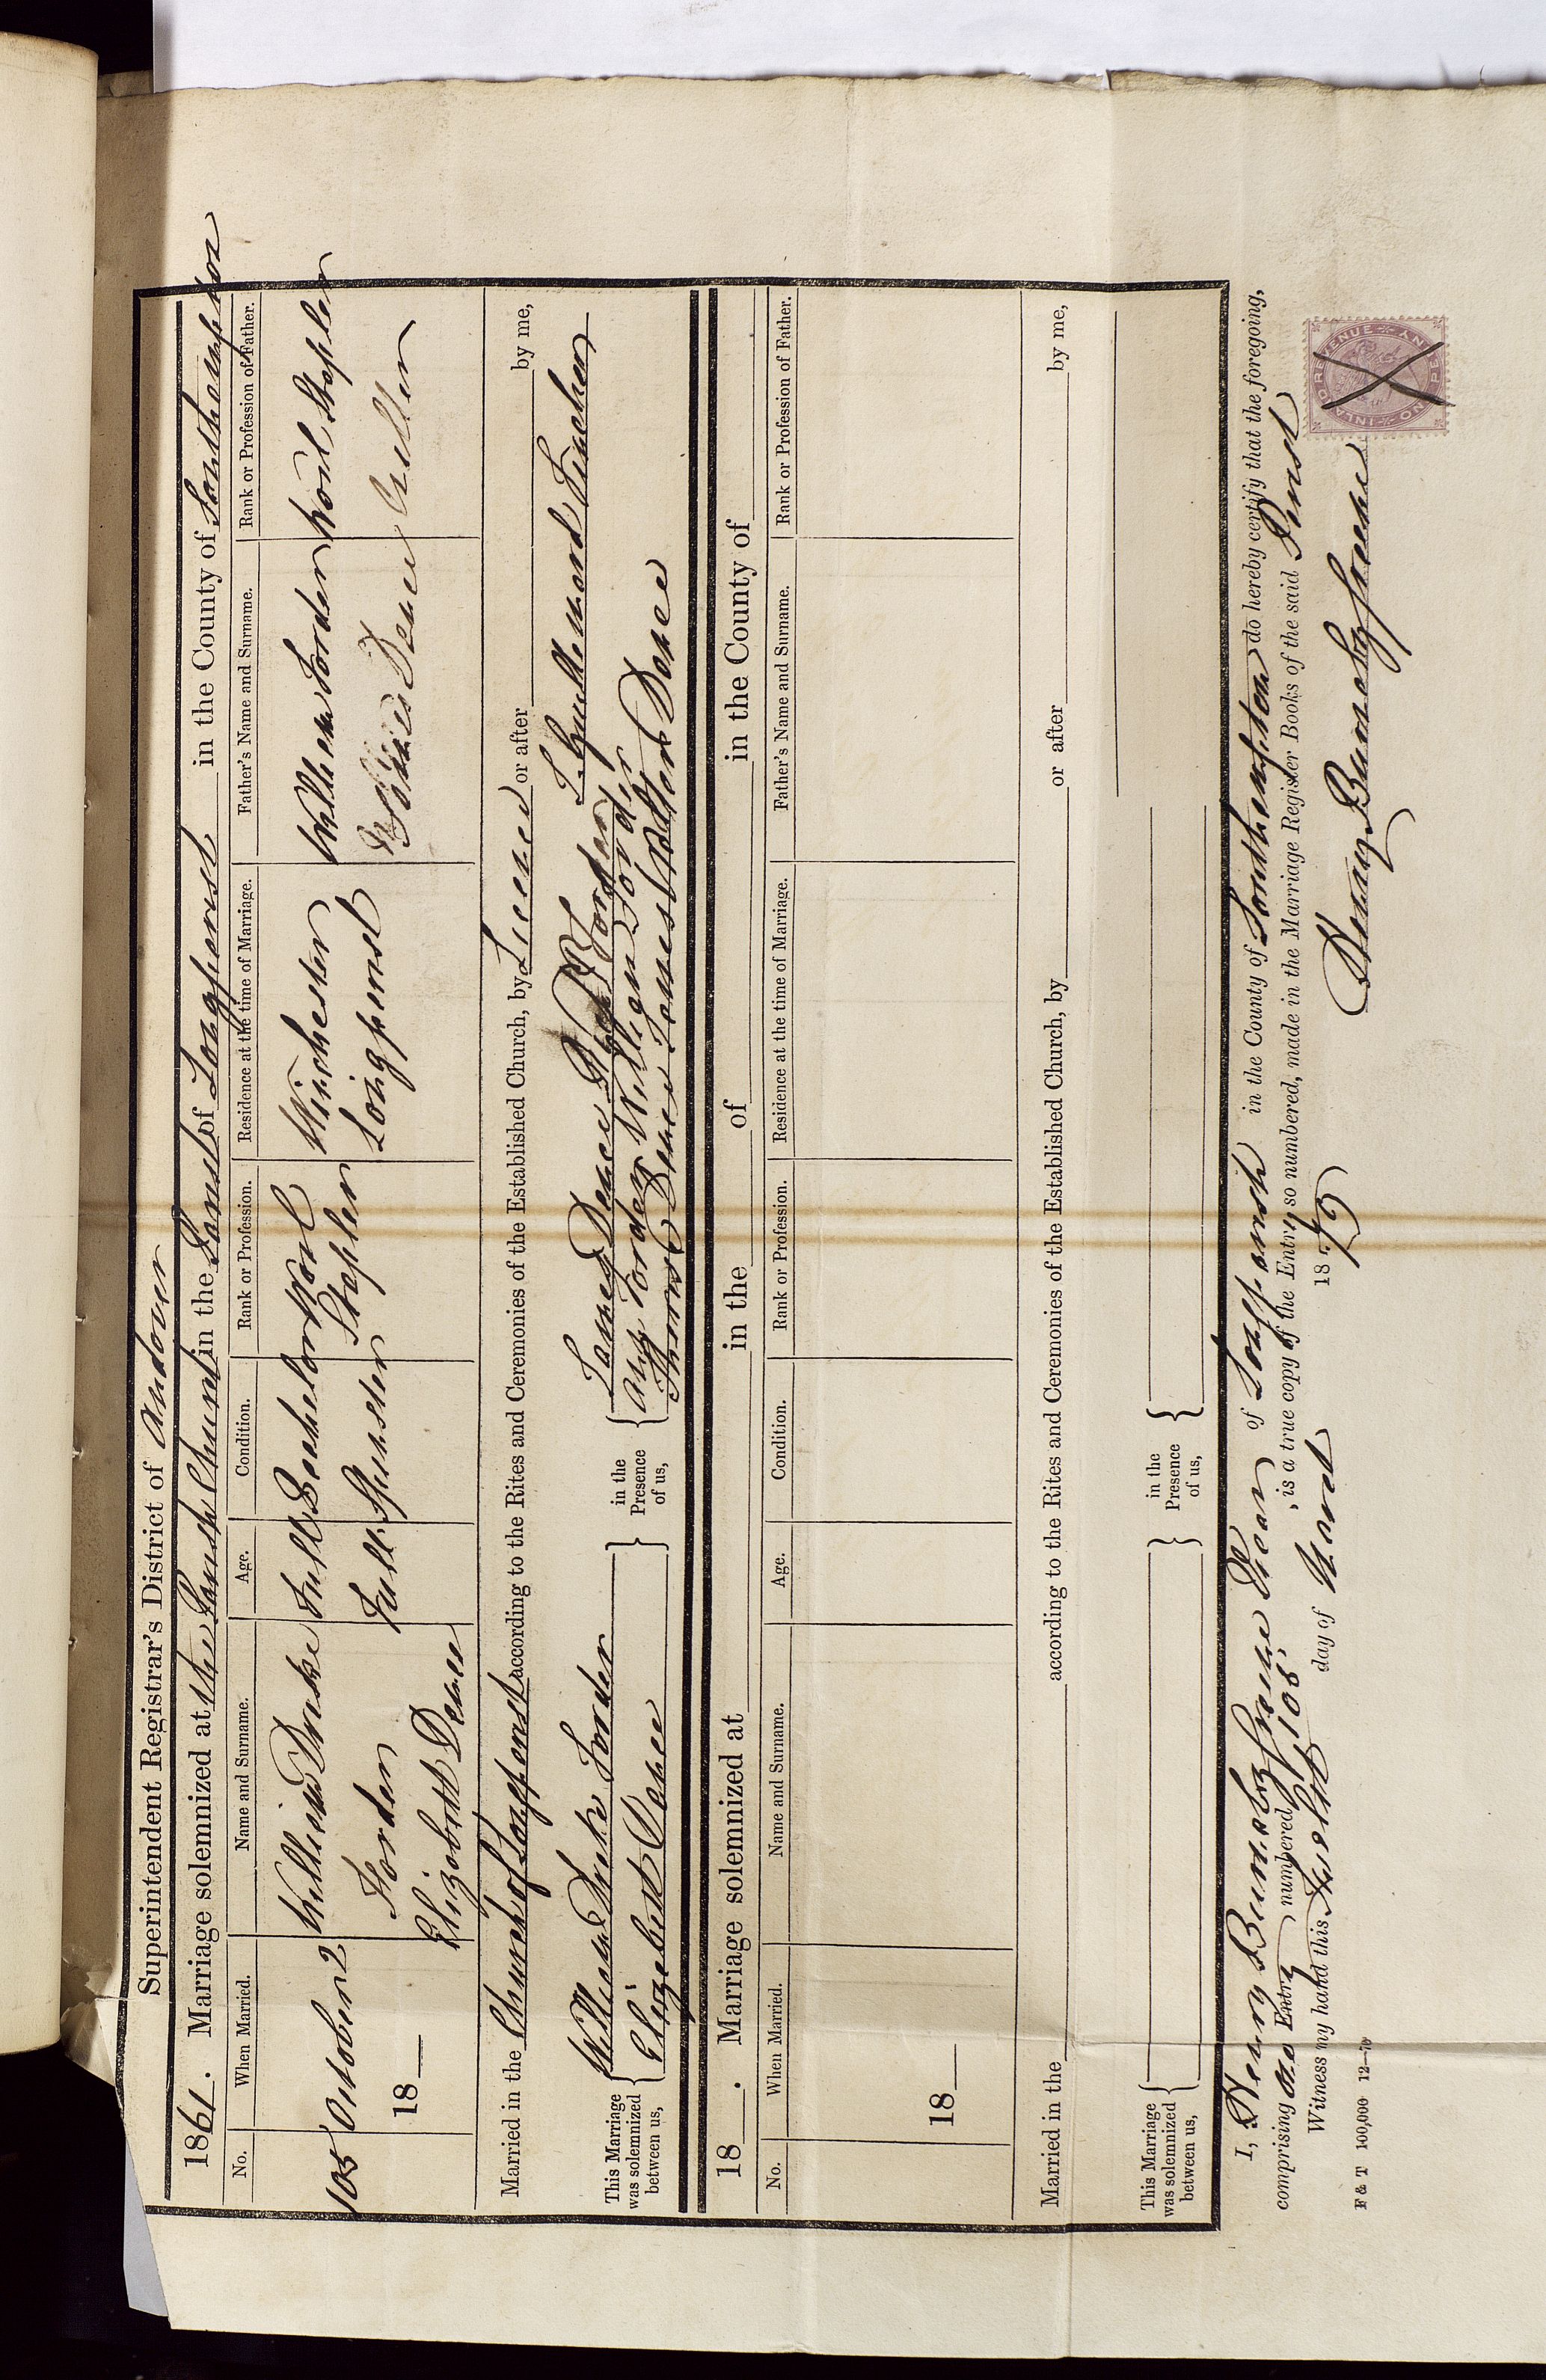 Superintendent Registrar's District of Andover
1861. Marriage solemnized at the Parish Church in the Parish of Longparish in the County of Southampton
No. When Married. Name and Surname. Age. Condition. Rank or Profession. Residence at the time of Marriage. Father's Name and Surname. Rank or Profession of Father.
105 October 2 William Drake Full Bachelor Wool Winchester William Forder Wool Stapler
18 Forder Full Spinster Stapler Longparish James Dance
Elizabeth Dance
Married in the Church of Longparish according to the Rites and Ceremonies of the Established Church, by Licence or after by me,
This Marriage was solemnized between us, William Drake Forder in the Presence of us, James Dance
Elizabeth Dance Forder William Forder
Dance James Dance
18 . Marriage solemnized at in the of in the County of
No. When Married. Name and Surname. Age. Condition. Rank or Profession. Residence at the time of Marriage. Father's Name and Surname. Rank or Profession of Father.
18
Married in the according to the Rites and Ceremonies of the Established Church, by or after by me,
This Marriage was solemnized between us, in the Presence of us,
I, Henry Burnaby Greene Vicar of Longparish in the County of Southampton do hereby certify that the foregoing,
comprising an Entry numbered 105, is a true copy of the Entry so numbered, made in the Marriage Register Books of the said Parish
Witness my hand this Twelfth day of March 1879
Henry Burnaby Greene
F & T 100,000 12—70
INLAND REVENUE ONE PENNY